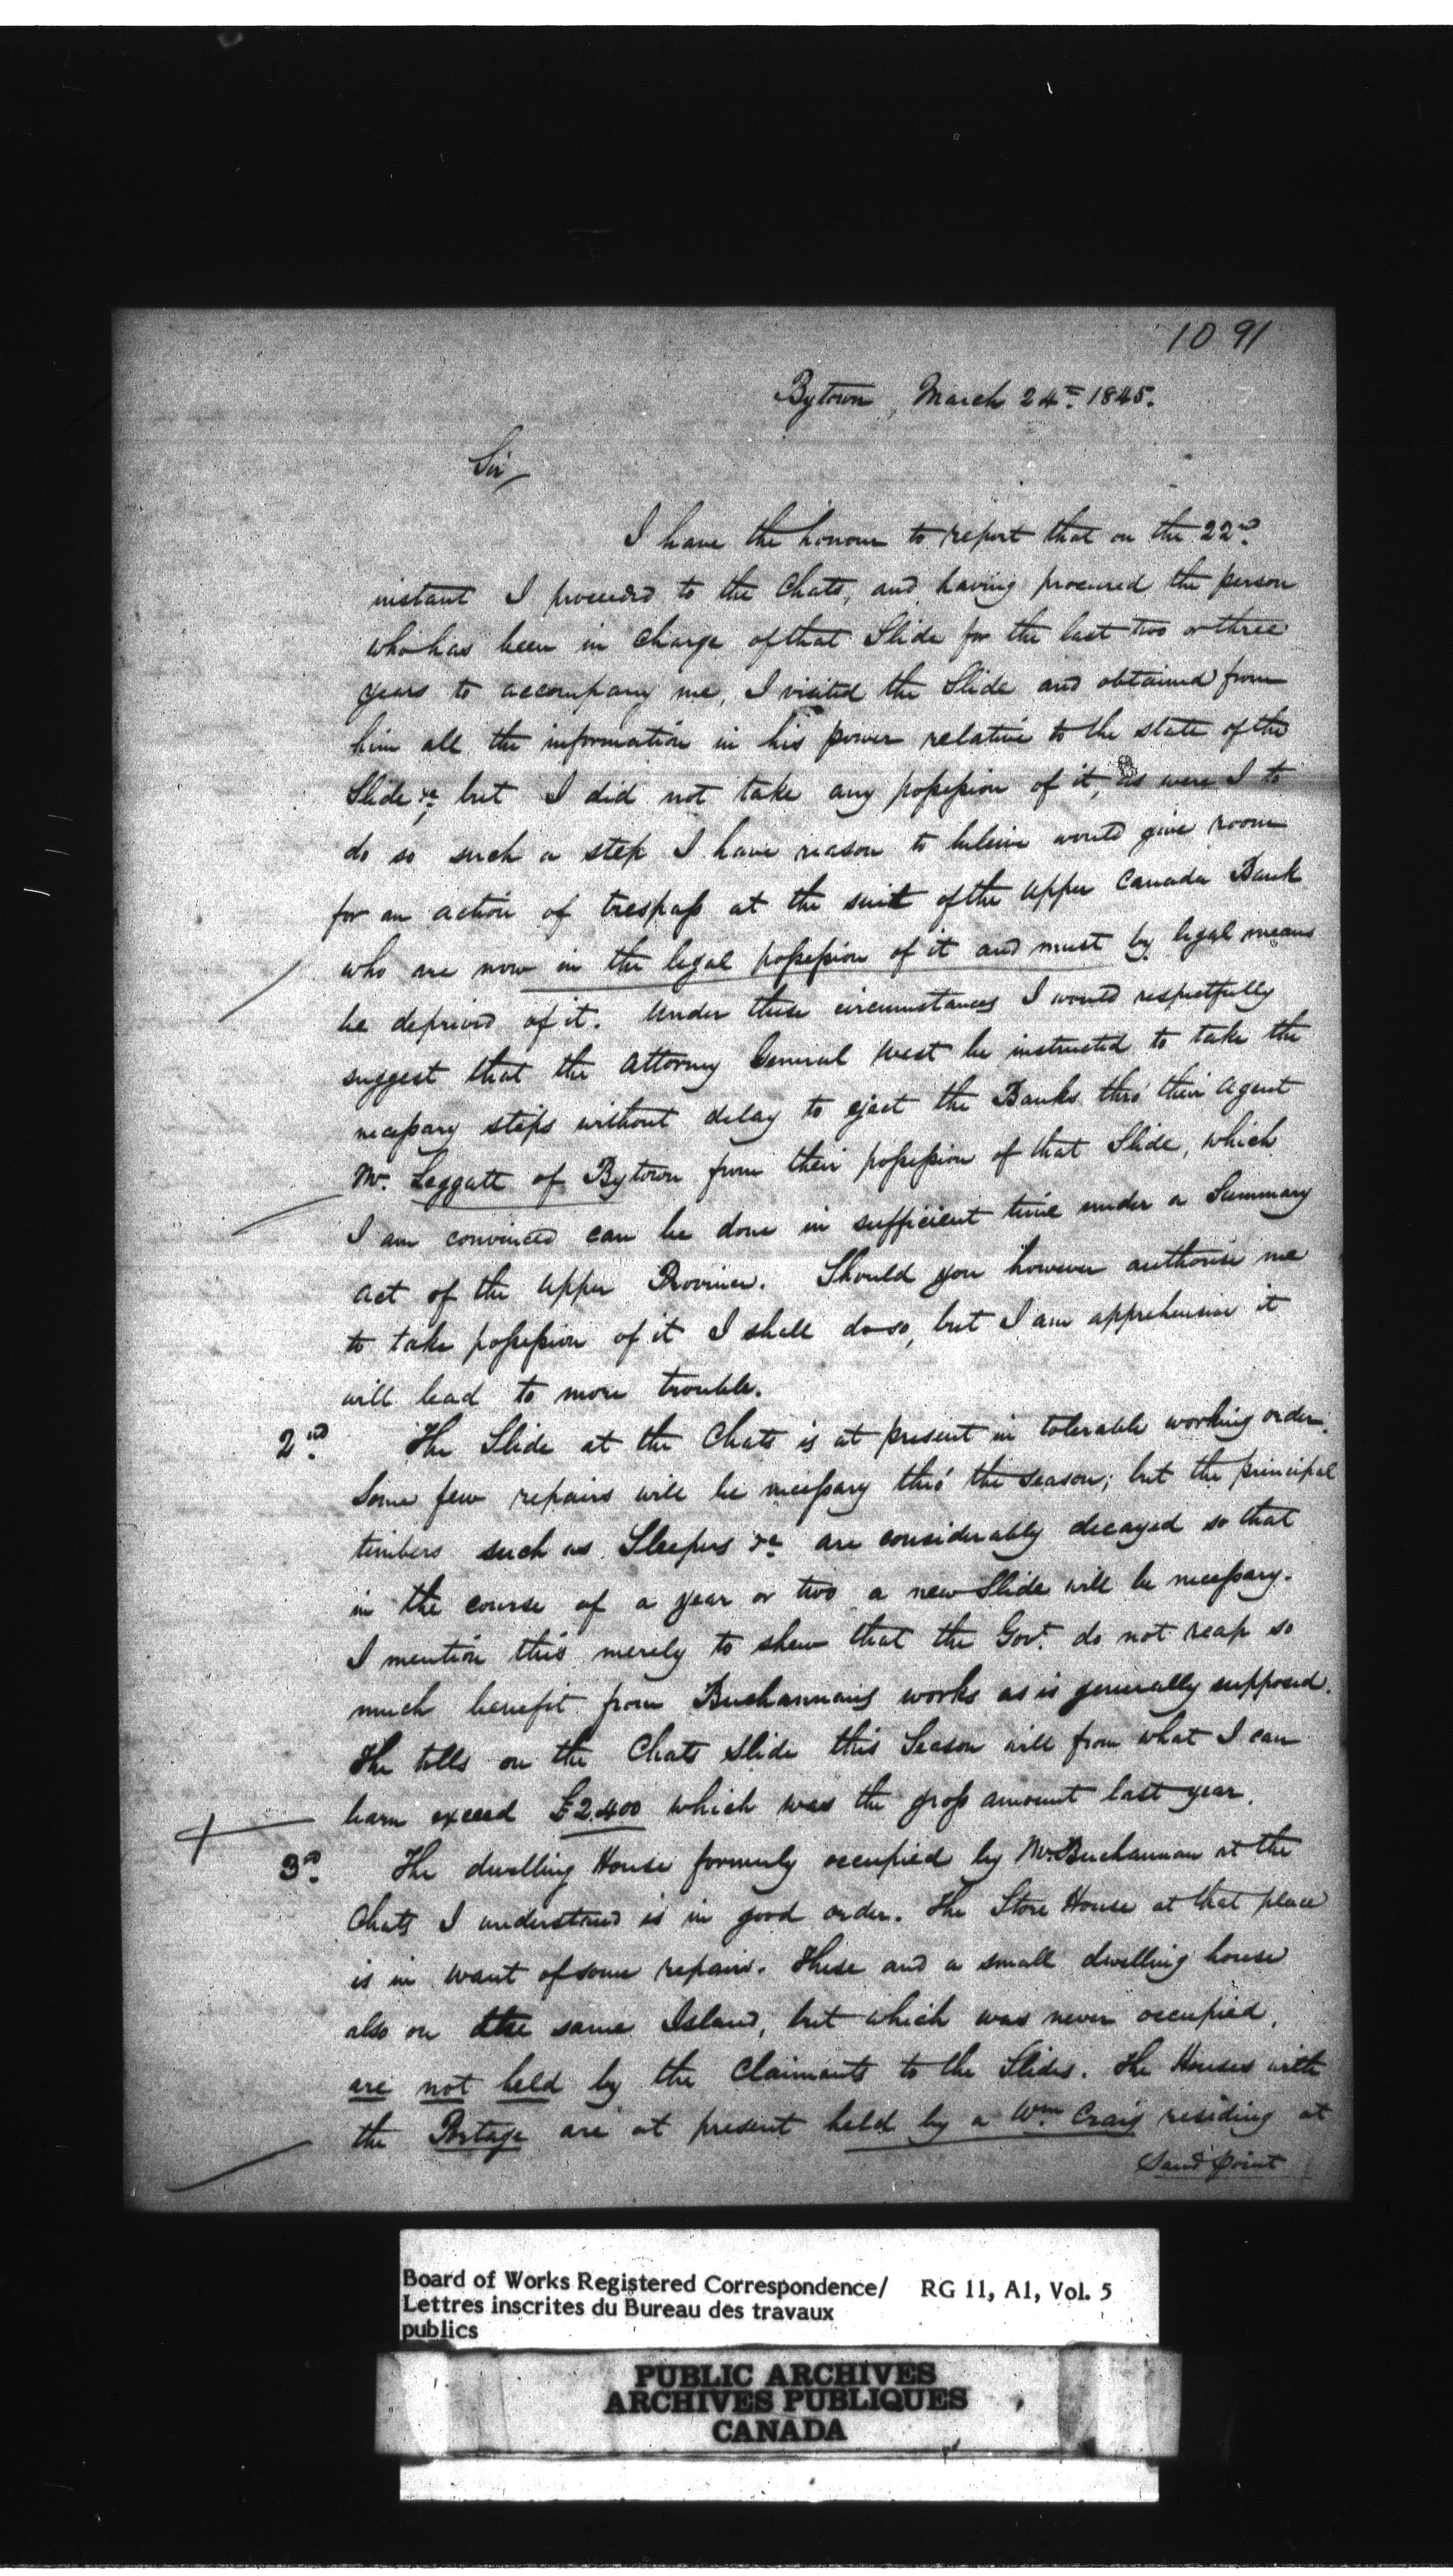 1091
Bytown, March 24th 1845.
Sir,
I have the honour to report that on the 22nd
instant I proceeded to the Chats, and having procured the person
who has been in charge of that Slide for the last two or three
years to accompany me, I visited the Slide and obtained from
him all the information in his power relative to the state of the
Slide &c but I did not take any possession of it, as were I to
do so such a step I have reason to believe would give room
for an action of trespass at the suit of the Upper Canada Bank
who are now in the legal possession of it and must by legal means
be deprived of it. Under these circumstances I would respectfully
suggest that the Attorney General West be instructed to take the
necessary steps without delay to eject the Banks thro' their Agent
Mr. Leggatt of Bytown from their possession of that Slide, which
I am convinced can be done in sufficient time under a Summary
Act of the Upper Province. Should you however authorise me
to take possession of it I shall do so, but I am apprehensive it
will lead to more trouble.
2nd The Slide at the Chats is at present in tolerable working order.
Some few repairs will be necessary thro' the season; but the principal
timbers such as Sleepers &c are considerably decayed so that
in the course of a year or two a new Slide will be necessary.
I mention this merely to shew that the Govt. do not reap so
much benefit from Buchannans works as is generally supposed.
The tolls on the Chats Slide this Season will from what I can
learn exceed £2.400 which was the gross amount last year.
3d The dwelling House formerly occupied by Mr. Buchannan at the
Chats I understand is in good order. The Store House at that place
is in want of some repairs. These and a small dwelling house
also on the same Island, but which was never occupied,
are not held by the Claimants to the Slides. The Houses with
the Portage are at present held by a Wm Craig residing at
Sand Point
Board of Works Registered Correspondence/ RG 11, A1, Vol. 5
Lettres inscrites du Bureau des travaux
publics
PUBLIC ARCHIVES
ARCHIVES PUBLIQUES
CANADA